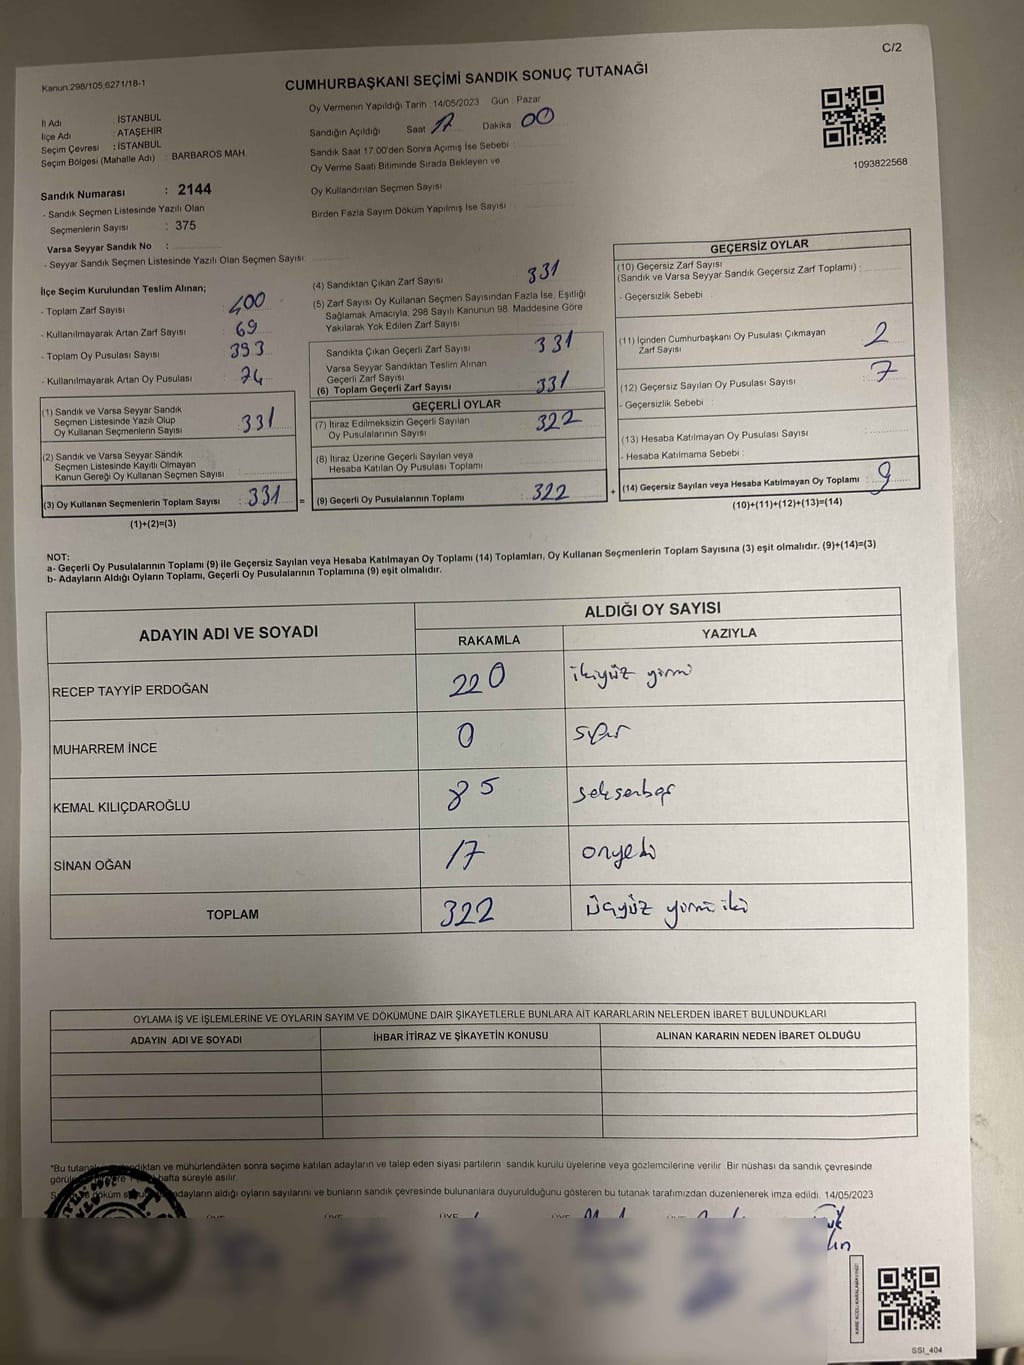 C/2
Kanun:298/105,6271/18-1
CUMHURBAŞKANI SEÇİMİ SANDIK SONUÇ TUTANAĞI
İl Adı : İSTANBUL
İlçe Adı : ATAŞEHİR
Seçim Çevresi : İSTANBUL
Seçim Bölgesi (Mahalle Adı) : BARBAROS MAH.
Oy Vermenin Yapıldığı Tarih : 14/05/2023 Gün : Pazar
Sandığın Açıldığı Saat 17 Dakika 00
Sandık Saat 17:00'den Sonra Açımış İse Sebebi :
Oy Verme Saati Bitiminde Sırada Bekleyen ve
Oy Kullandırılan Seçmen Sayısı
Birden Fazla Sayım Döküm Yapılmış İse Sayısı :
1093822568
Sandık Numarası : 2144
- Sandık Seçmen Listesinde Yazılı Olan
Seçmenlerin Sayısı : 375
Varsa Seyyar Sandık No :
- Seyyar Sandık Seçmen Listesinde Yazılı Olan Seçmen Sayısı:
İlçe Seçim Kurulundan Teslim Alınan;
- Toplam Zarf Sayısı : 400
- Kullanılmayarak Artan Zarf Sayısı : 69
- Toplam Oy Pusulası Sayısı : 393
- Kullanılmayarak Artan Oy Pusulası : 74
(1) Sandık ve Varsa Seyyar Sandık
Seçmen Listesinde Yazılı Olup
Oy Kullanan Seçmenlerin Sayısı : 331
(2) Sandık ve Varsa Seyyar Sandık
Seçmen Listesinde Kayıtlı Olmayan
Kanun Gereği Oy Kullanan Seçmen Sayısı
(3) Oy Kullanan Seçmenlerin Toplam Sayısı : 331 =
(1)+(2)=(3)
(4) Sandıktan Çıkan Zarf Sayısı 331
(5) Zarf Sayısı Oy Kullanan Seçmen Sayısından Fazla İse, Eşitliği
Sağlamak Amacıyla; 298 Sayılı Kanunun 98. Maddesine Göre
Yakılarak Yok Edilen Zarf Sayısı
Sandıkta Çıkan Geçerli Zarf Sayısı 331
Varsa Seyyar Sandıktan Teslim Alınan
Geçerli Zarf Sayısı
(6) Toplam Geçerli Zarf Sayısı 331
GEÇERLİ OYLAR
(7) İtiraz Edilmeksizin Geçerli Sayılan
Oy Pusulalarının Sayısı : 322
(8) İtiraz Üzerine Geçerli Sayılan veya
Hesaba Katılan Oy Pusulası Toplamı
(9) Geçerli Oy Pusulalarının Toplamı : 322 +
GEÇERSİZ OYLAR
(10) Geçersiz Zarf Sayısı
(Sandık ve Varsa Seyyar Sandık Geçersiz Zarf Toplamı) :
- Geçersizlik Sebebi :
(11) İçinden Cumhurbaşkanı Oy Pusulası Çıkmayan
Zarf Sayısı 2
(12) Geçersiz Sayılan Oy Pusulası Sayısı 7
- Geçersizlik Sebebi :
(13) Hesaba Katılmayan Oy Pusulası Sayısı
- Hesaba Katılmama Sebebi :
(14) Geçersiz Sayılan veya Hesaba Katılmayan Oy Toplamı : 9
(10)+(11)+(12)+(13)=(14)
NOT:
a- Geçerli Oy Pusulalarının Toplamı (9) ile Geçersiz Sayılan veya Hesaba Katılmayan Oy Toplamı (14) Toplamları, Oy Kullanan Seçmenlerin Toplam Sayısına (3) eşit olmalıdır. (9)+(14)=(3)
b- Adayların Aldığı Oyların Toplamı, Geçerli Oy Pusulalarının Toplamına (9) eşit olmalıdır.
ADAYIN ADI VE SOYADI
ALDIĞI OY SAYISI
RAKAMLA YAZIYLA
RECEP TAYYİP ERDOĞAN 220 ikiyüz yirmi
MUHARREM İNCE 0 sıfır
KEMAL KILIÇDAROĞLU 85 seksenbeş
SİNAN OĞAN 17 onyedi
TOPLAM 322 üçyüz yirmi iki
OYLAMA İŞ VE İŞLEMLERİNE VE OYLARIN SAYIM VE DÖKÜMÜNE DAİR ŞİKAYETLERLE BUNLARA AİT KARARLARIN NELERDEN İBARET BULUNDUKLARI
ADAYIN ADI VE SOYADI İHBAR İTİRAZ VE ŞİKAYETİN KONUSU ALINAN KARARIN NEDEN İBARET OLDUĞU
*Bu tutanak ve mühürlendikten sonra seçime katılan adayların ve talep eden siyasi partilerin sandık kurulu üyelerine veya gözlemcilerine verilir. Bir nüshası da sandık çevresinde
hafta süreyle asılır.
döküm adayların aldığı oyların sayılarını ve bunların sandık çevresinde bulunanlara duyurulduğunu gösteren bu tutanak tarafımızdan düzenlenerek imza edildi. 14/05/2023
SSI_404